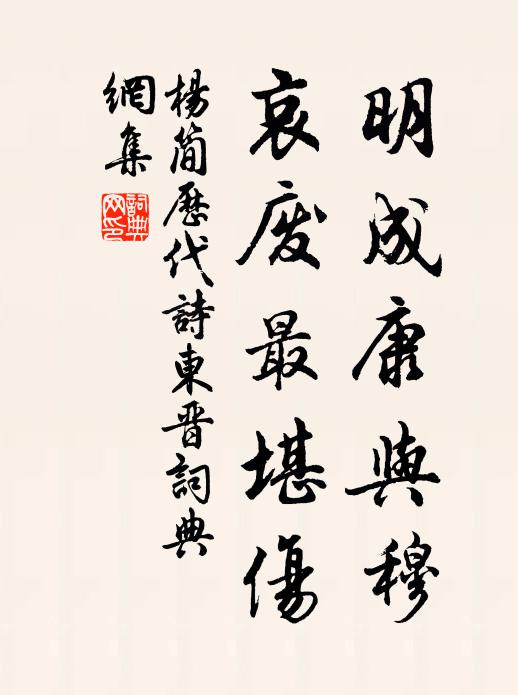 明成康與穆
哀废最堪傷
楊簡歷代詩東晋詞典
網集
詞典
网印